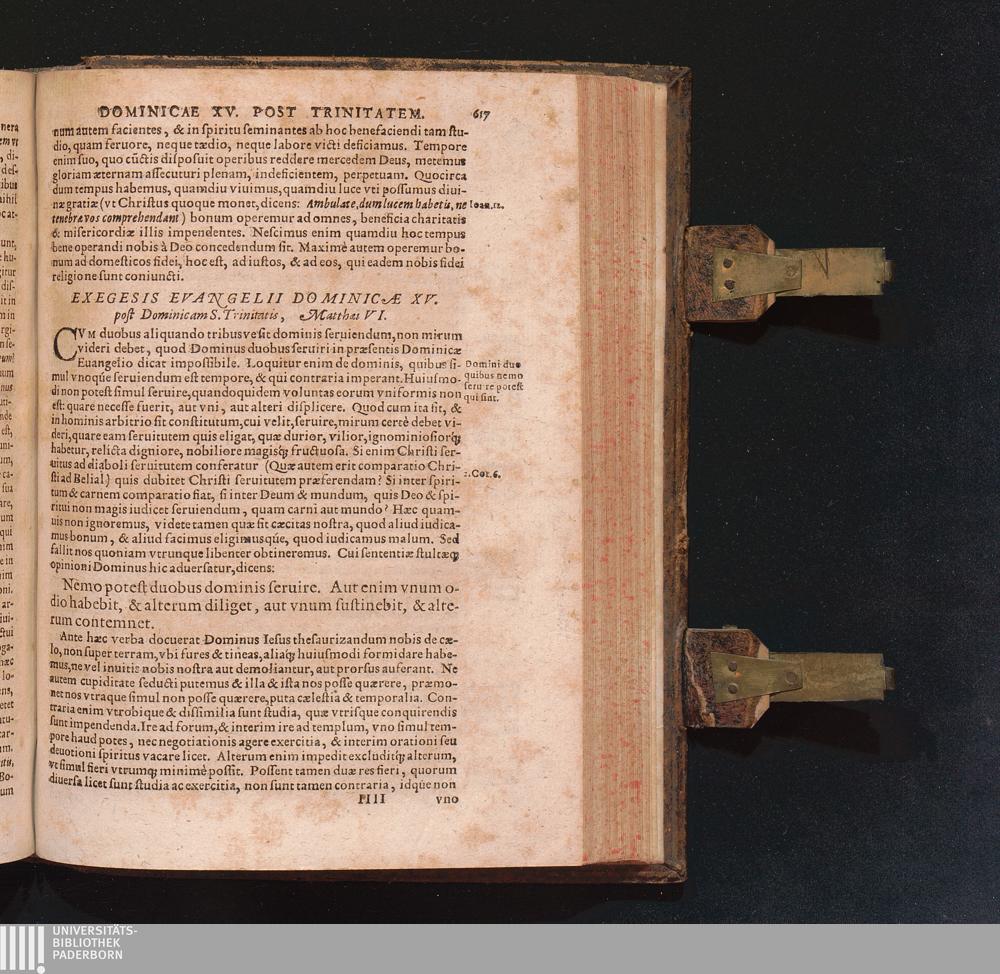 DOMINICAE XV. POST TRINITATEM. 617
num autem facientes, & in spiritu seminantes ab hoc benefaciendi tam stu-
dio, quam feruore, neque tædio, neque labore victi deficiamus. Tempore
enim suo, quo cũctis disposuit operibus reddere mercedem Deus, metemus
gloriam æternam assecuturi plenam, indeficientem, perpetuam. Quocirca
dum tempus habemus, quamdiu viuimus, quamdiu luce vti possumus diui-
næ gratiæ (vt Christus quoque monet, dicens: Ambulate, dum lucem habetis, ne
Ioan.12.
tenebræ vos comprehendant) bonum operemur ad omnes, beneficia charitatis
& misericordiæ illis impendentes. Nescimus enim quamdiu hoc tempus
bene operandi nobis à Deo concedendum sit. Maximè autem operemur bo-
num ad domesticos fidei, hoc est, ad iustos, & ad eos, qui eadem nobis fidei
religione sunt coniuncti.
EXEGESIS EVANGELII DOMINICÆ XV.
post Dominicam S. Trinitatis, Matthæi VI.
CVM duobus aliquando tribusve sit dominis seruiendum, non mirum
videri debet, quod Dominus duobus seruiri in præsentis Dominicæ
Euangelio dicat impossibile. Loquitur enim de dominis, quibus si-
mul vnoque seruiendum est tempore, & qui contraria imperant. Huiusmo-
di non potest simul seruire, quandoquidem voluntas eorum vniformis non
est: quare necesse fuerit, aut vni, aut alteri displicere. Quod cum ita sit, &
in hominis arbitrio sit constitutum, cui velit, seruire, mirum certè debet vi-
deri, quare eam seruitutem quis eligat, quæ durior, vilior, ignominiosiorq́;
habetur, relicta digniore, nobiliore magisq́; fructuosa. Si enim Christi ser-
uitus ad diaboli seruitutem conferatur (Quæ autem erit comparatio Chri-
sti ad Belial) quis dubitet Christi seruitutem præferendam? Si inter spiri-
tum & carnem comparatio fiat, si inter Deum & mundum, quis Deo & spi-
ritui non magis iudicet seruiendum, quam carni aut mundo? Hæc quam-
uis non ignoremus, videte tamen quæ sit cæcitas nostra, quod aliud iudica-
mus bonum, & aliud facimus eligimusque, quod iudicamus malum. Sed
fallit nos quoniam vtrunque libenter obtineremus. Cui sententiæ stultæq́;
opinioni Dominus hic aduersatur, dicens:
Domini duo
quibus nemo
seruire potest
qui sint.
2.Cor.6.
Nemo potest duobus dominis seruire. Aut enim vnum o-
dio habebit, & alterum diliget, aut vnum sustinebit, & alte-
rum contemnet.
Ante hæc verba docuerat Dominus Iesus thesaurizandum nobis de cæ-
lo, non super terram, vbi fures & tineas, aliaq́; huiusmodi formidare habe-
mus, ne vel inuitis nobis nostra aut demoliantur, aut prorsus auferant. Ne
autem cupiditate seducti putemus & illa & ista nos posse quærere, præmo-
net nos vtraque simul non posse quærere, puta cælestia & temporalia. Con-
traria enim vtrobique & dissimilia sunt studia, quæ vtrisque conquirendis
sunt impendenda. Ire ad forum, & interim ire ad templum, vno simul tem-
pore haud potes, nec negotiationis agere exercitia, & interim orationi seu
deuotioni spiritus vacare licet. Alterum enim impedit excluditq́; alterum,
vt simul fieri vtrumq́; minimè possit. Possent tamen duæ res fieri, quorum
diuersa licet sunt studia ac exercitia, non sunt tamen contraria, idque non
IIII vno
UNIVERSITÄTS-
BIBLIOTHEK
PADERBORN